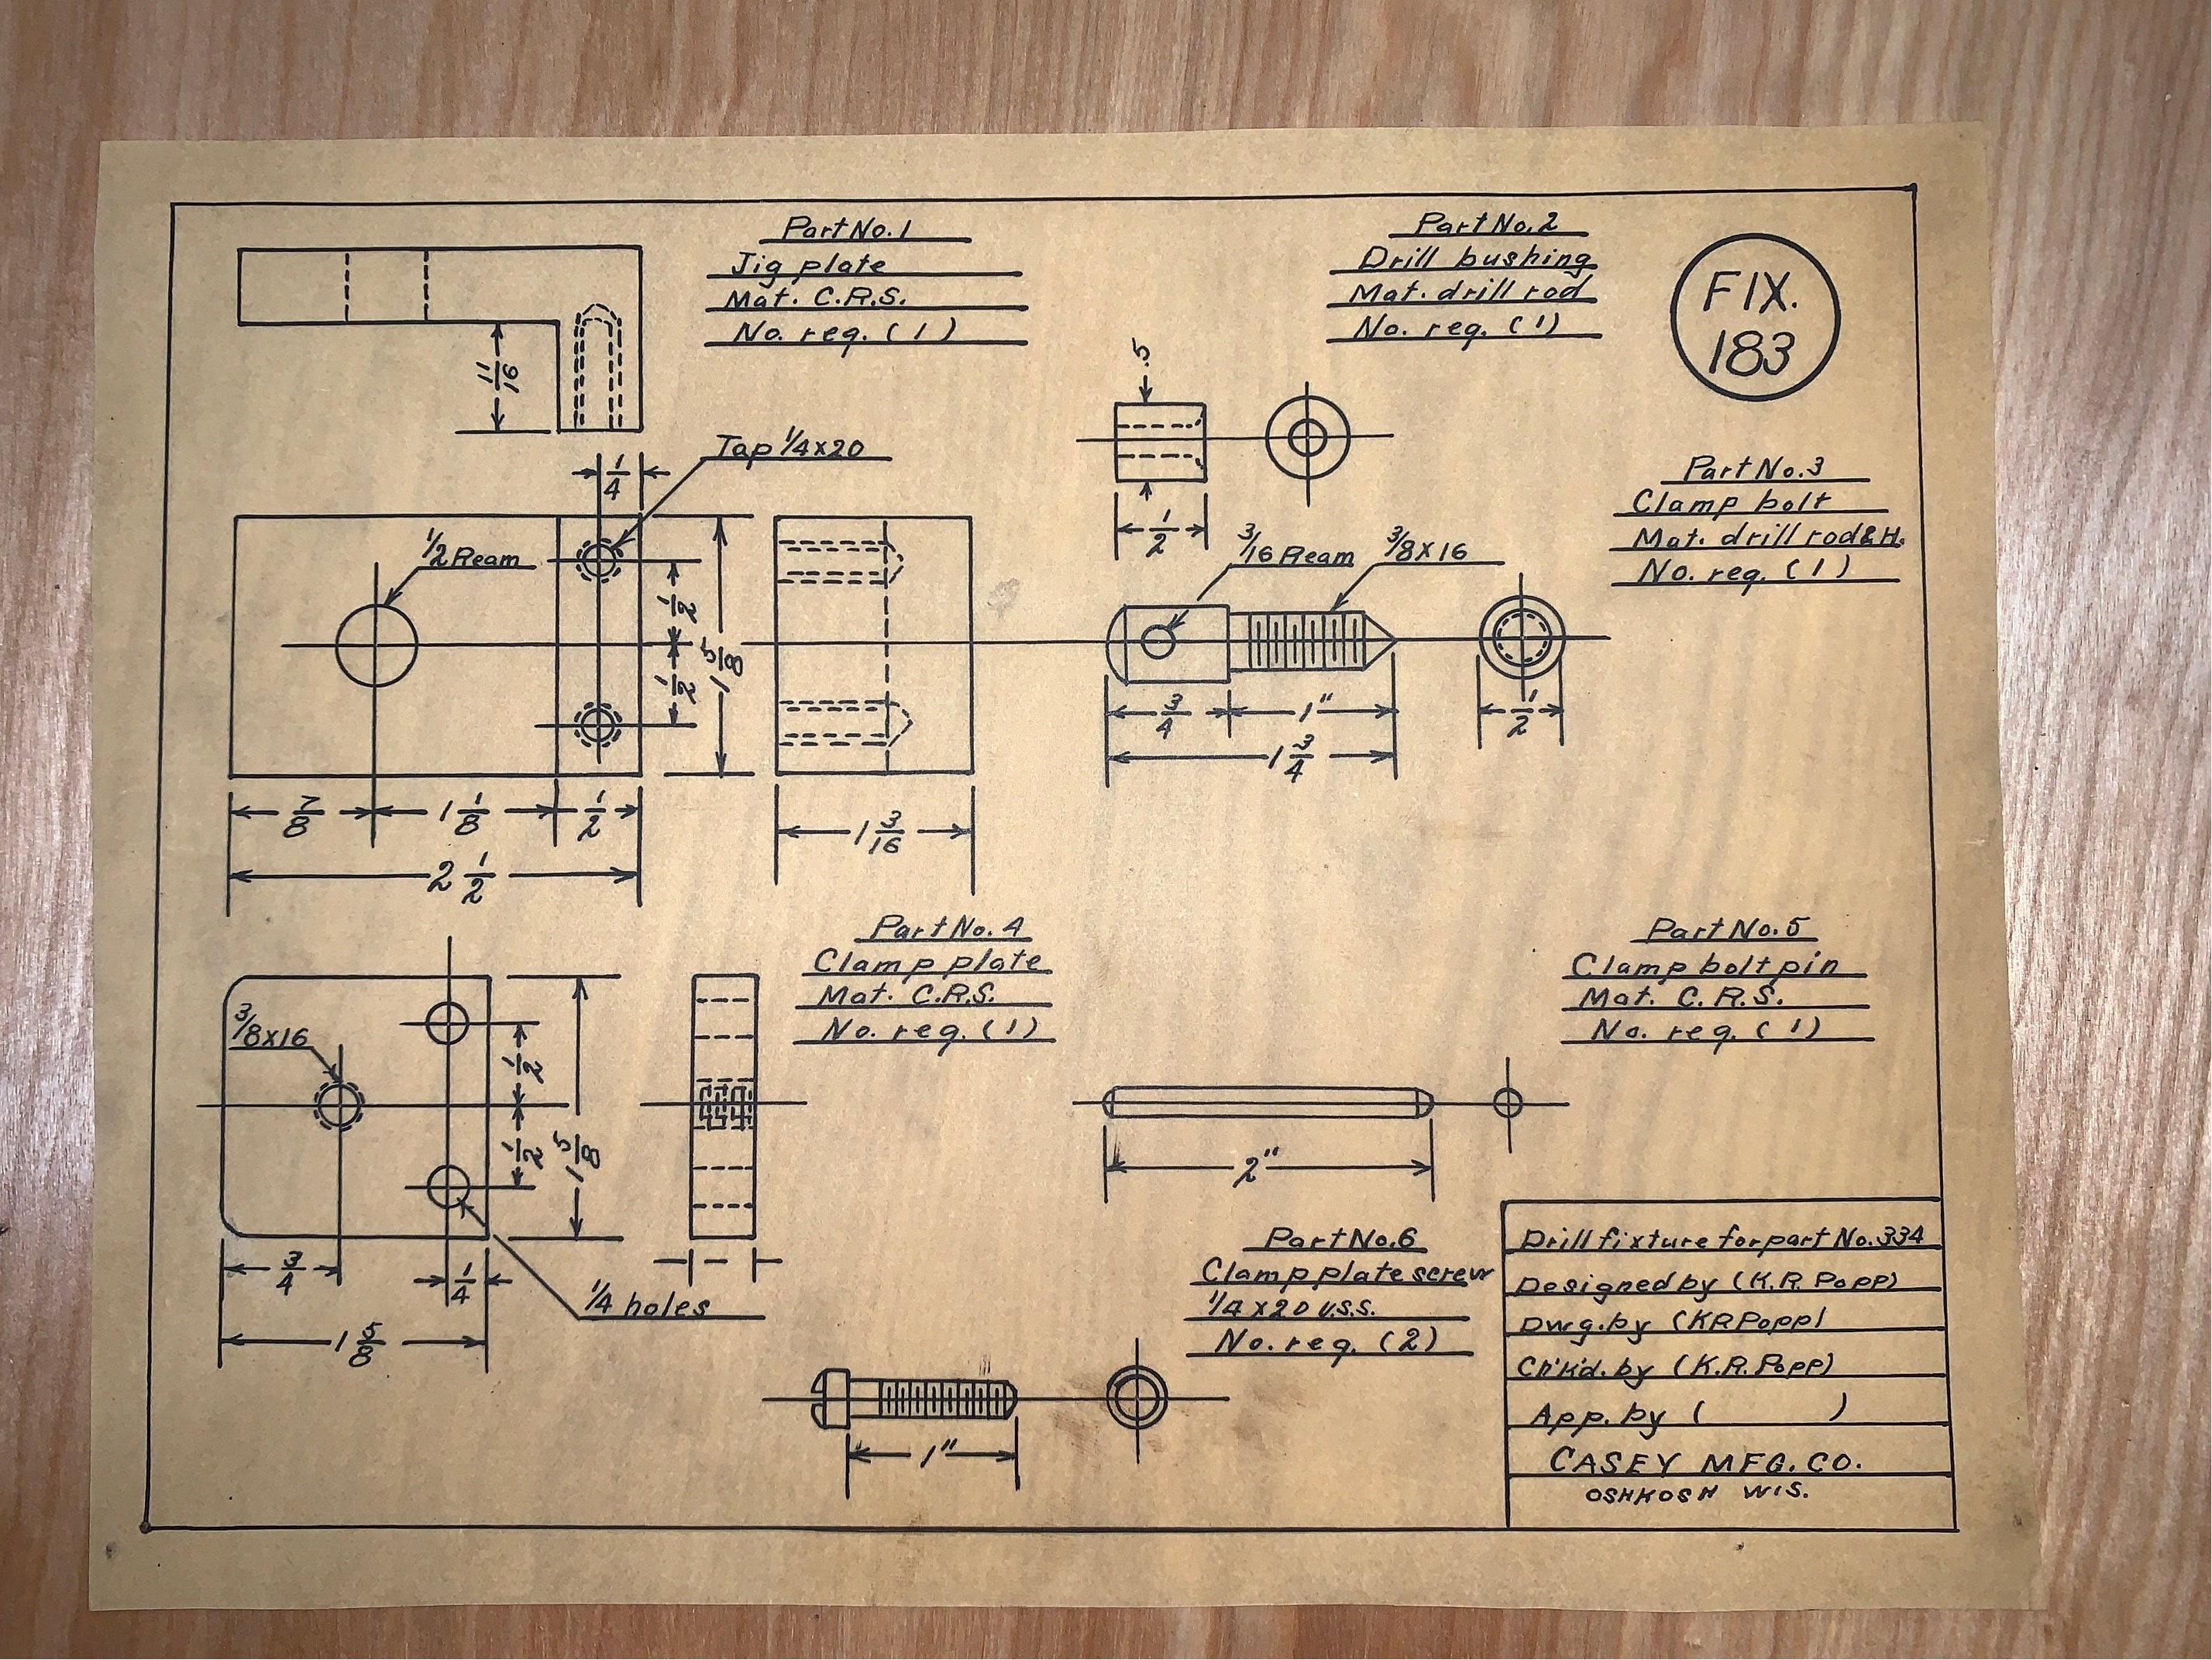 Part No. 1
Jig plate
Mat. C.R.S.
No. req. (1)
Part No. 2
Drill bushing
Mat. drill rod
No. req. (1)
FIX.
183
11/16
.5
1/4
Tap 1/4x20
1/2
Part No. 3
Clamp bolt
Mat. drill rod & H.
No. req. (1)
1/2 Ream
1/2
1/2
1 5/8
3/16 Ream
3/8x16
3/4
1"
1 3/4
1/2
7/8
1 1/8
1/2
2 1/2
1 3/16
Part No. 4
Clamp plate
Mat. C.R.S.
No. req. (1)
Part No. 5
Clamp bolt pin
Mat. C.R.S.
No. req. (1)
3/8x16
1/2
1/2
1 5/8
3/4
1/4
1/4 holes
1 5/8
2"
Part No. 6
Clamp plate screw
1/4 x 20 U.S.S.
No. req. (2)
1"
Drill fixture for part No. 334
Designed by (K.R. Popp)
Dwg. by (KR Popp)
Ch'k'd. by (K.R. Popp)
App. by ( )
CASEY MFG. CO.
OSHKOSH WIS.